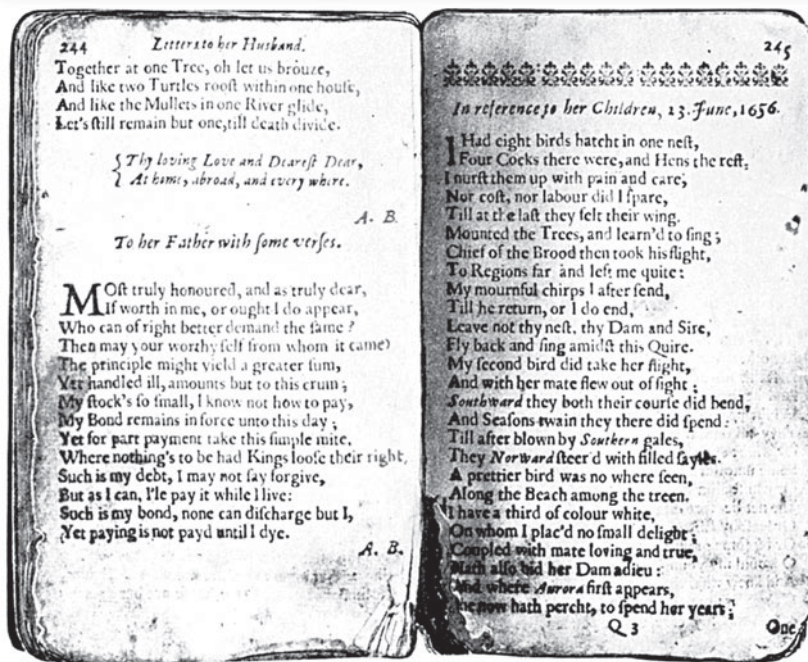 244 Letters to her Husband.
Together at one Tree, oh let us brouze,
And like two Turtles rooſt within one houſe,
And like the Mullets in one River glide,
Let's ſtill remain but one, till death divide.
Thy loving Love and Deareſt Dear,
At home, abroad, and every where.
A. B.
To her Father with ſome verſes.
MOſt truly honoured, and as truly dear,
If worth in me, or ought I do appear,
Who can of right better demand the ſame?
Then may your worthy ſelf from whom it came?
The principle might yield a greater ſum,
Yet handled ill, amounts but to this crum;
My ſtock's ſo ſmall, I know not how to pay,
My Bond remains in force unto this day;
Yet for part payment take this ſimple mite,
Where nothing's to be had Kings looſe their right,
Such is my debt, I may not ſay forgive,
But as I can, I'le pay it while I live:
Such is my bond, none can diſcharge but I,
Yet paying is not payd until I dye.
A. B.
245
In reference to her Children, 23. June, 1656.
I Had eight birds hatcht in one neſt,
Four Cocks there were, and Hens the reſt,
I nurſt them up with pain and care,
Nor coſt, nor labour did I ſpare,
Till at the laſt they felt their wing.
Mounted the Trees, and learn'd to ſing;
Chief of the Brood then took his flight,
To Regions far and left me quite:
My mournful chirps I after ſend,
Till he return, or I do end,
Leave not thy neſt, thy Dam and Sire,
Fly back and ſing amidſt this Quire.
My ſecond bird did take her flight,
And with her mate flew out of ſight;
Southward they both their courſe did bend,
And Seaſons twain they there did ſpend:
Till after blown by Southern gales,
They Norward ſteer'd with filled ſayles.
A prettier bird was no where ſeen,
Along the Beach among the treen.
I have a third of colour white,
On whom I plac'd no ſmall delight;
Coupled with mate loving and true,
Hath alſo bid her Dam adieu:
And where Aurora firſt appears,
She now hath percht, to ſpend her years;
Q 3 One